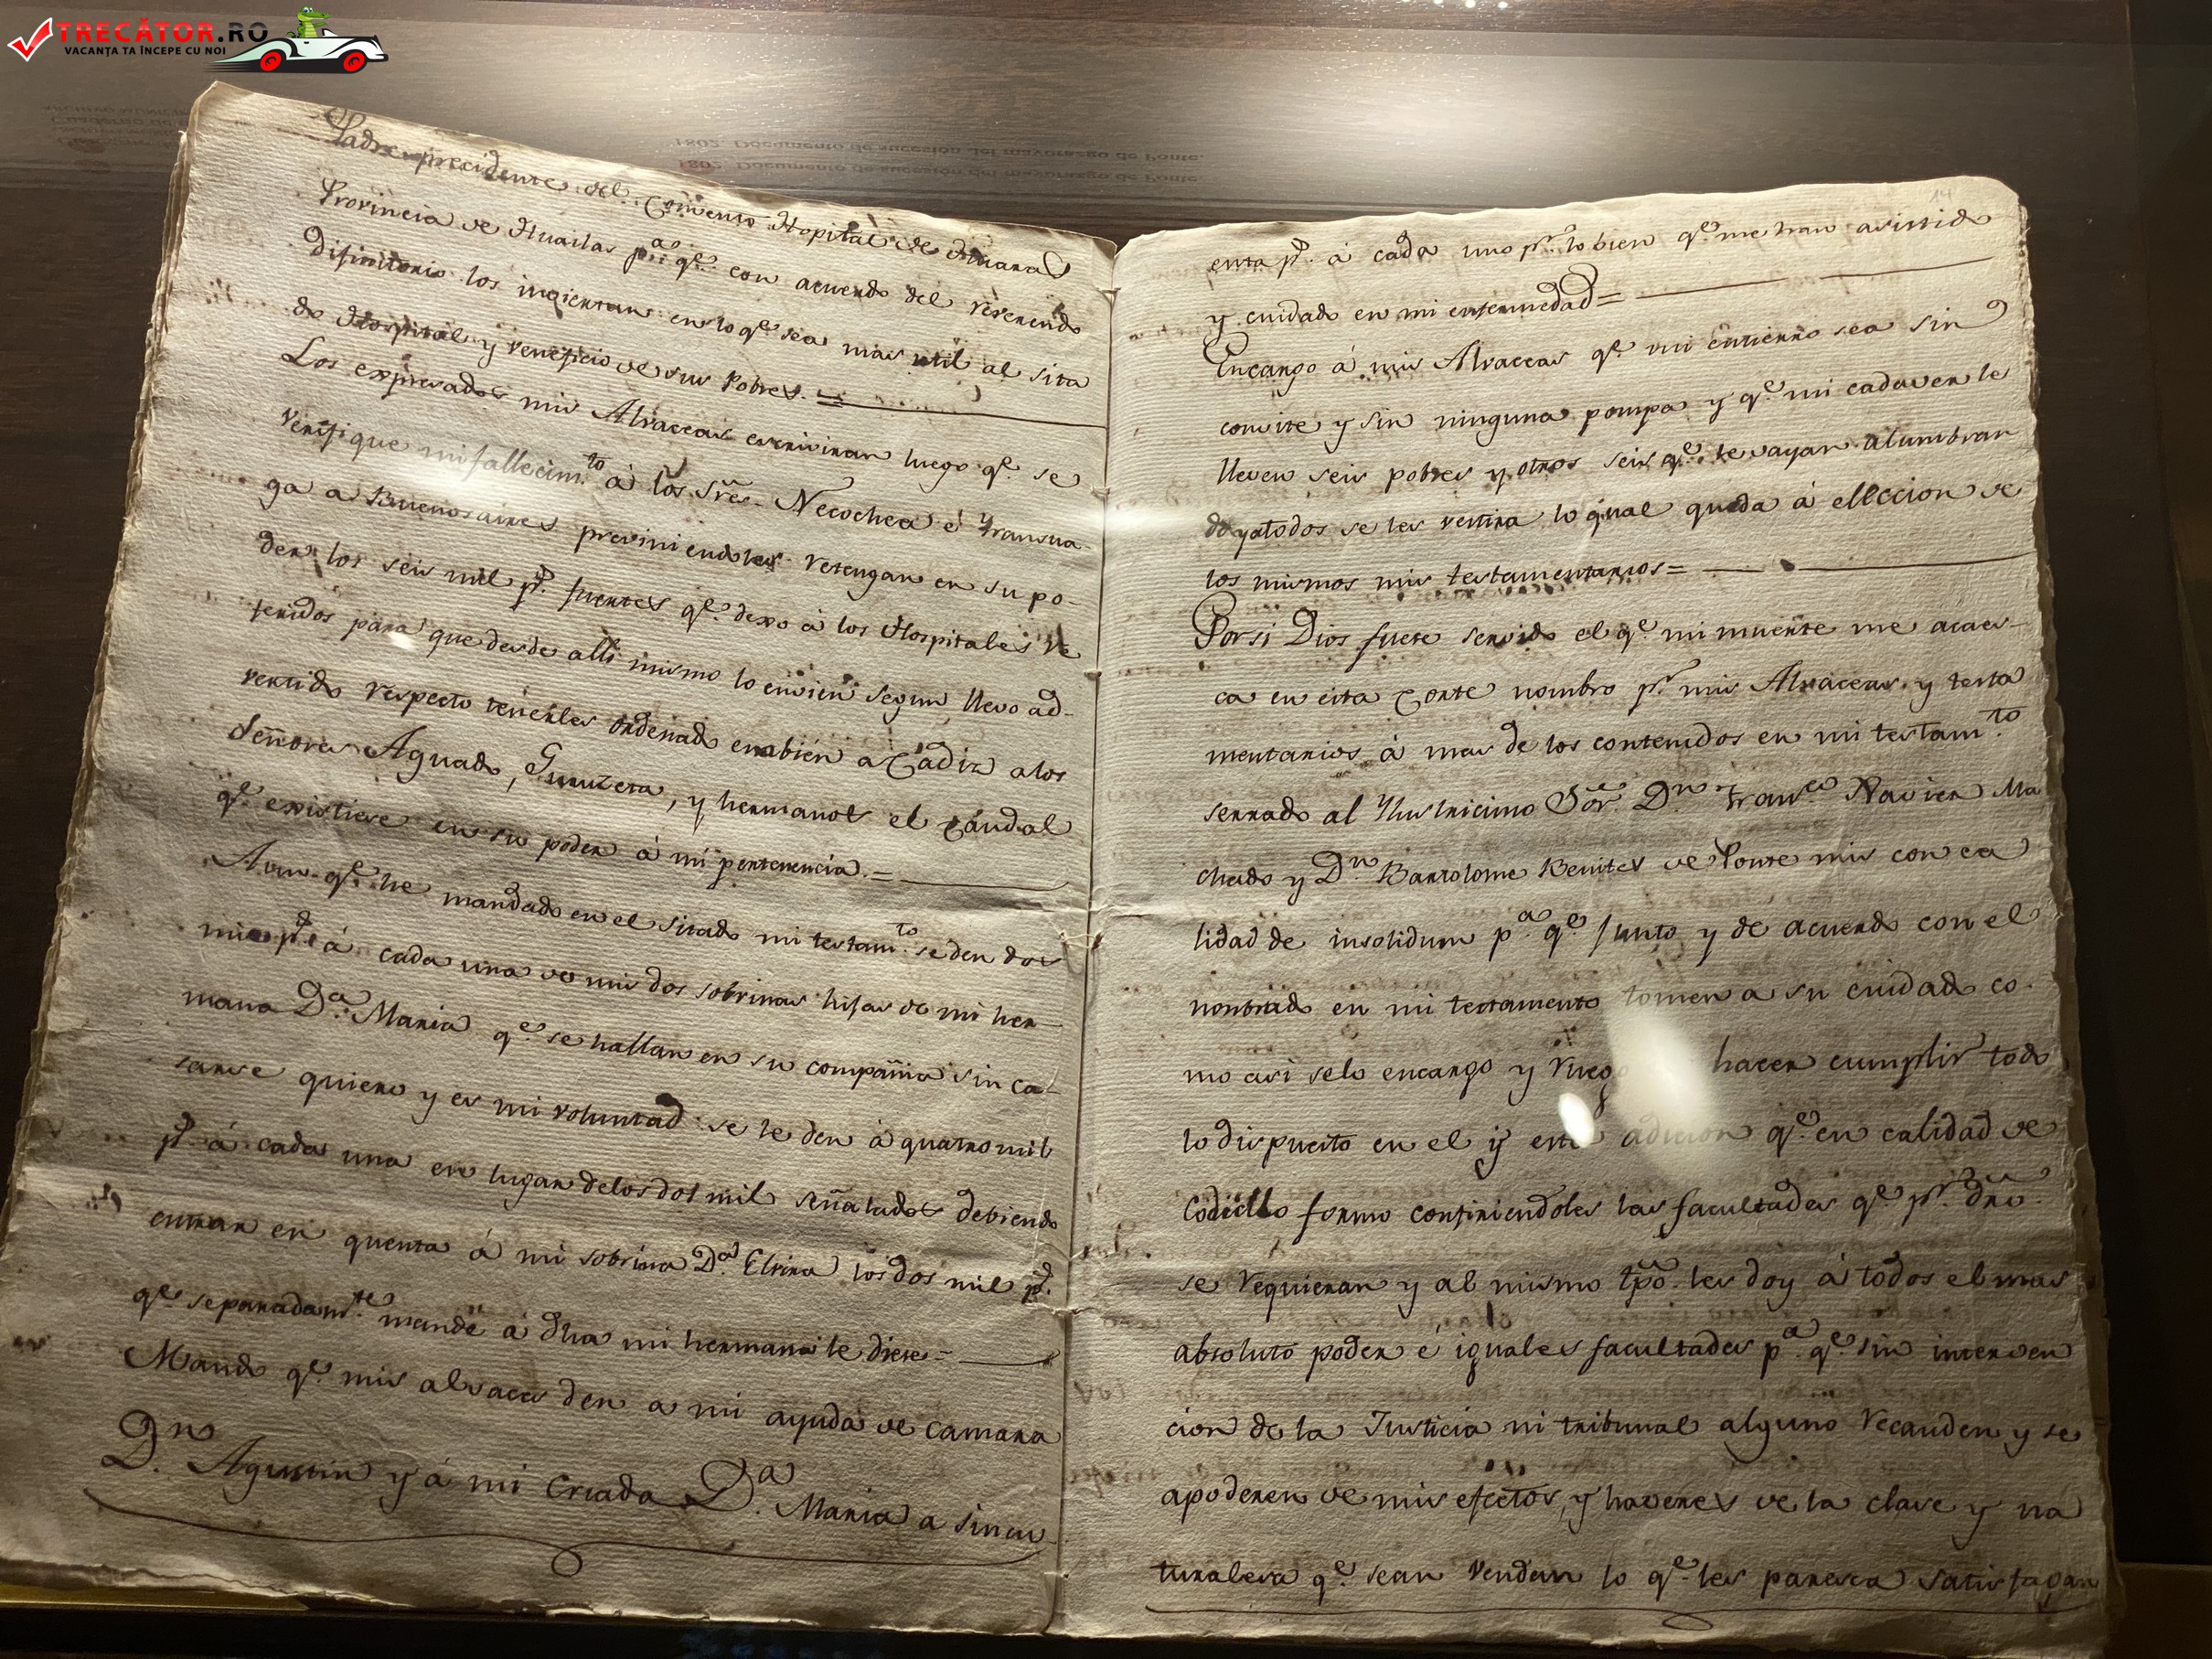 TRECĂTOR.RO
VACANȚA TA ÎNCEPE CU NOI
1802. Documento de sucesión del mayorazgo de Ponte.
Padre precidente del Comvento Hopital de Huaras
Provincia de Huailas pª. qᵉ. con acuerdo del reverendo
Difinitorio los inviertan en lo qᵉ. sea mas util al sita
do Hospital y veneficio de sus Pobres. =
Los expresados mis Alvaceas escriviran luego qᵉ. se
verifique mi fallecimᵗᵒ. à los Sres. Necochea è Yransua-
ga a Buenosaires previniendoles retengan en su po-
der los seis mil pˢ. fuertes qᵉ. dexo à los Hospitales re
feridos para que desde alli mismo lo envien segun llevo ad-
vertido respecto tenerles ordenado embien a Cadiz a los
Señores Aguado, Guruzeta, y hermanos el caudal
qᵉ. existiese en su poder à mi pertenencia. =
Aun qᵉ. he mandado en el sitado mi testamᵗᵒ. se den dos
mis pˢ. à cada una de mis dos sobrinas hijas de mi her-
mana Dª. Maria qᵉ. se hallan en su compañia sin ca-
sarse quiero y es mi voluntad se le den à quatro mil
pˢ. à cada una en lugar delos dos mil señalados debiendo
entrar en quenta á mi sobrina Dª. Elvira los dos mil pˢ.
qᵉ. separadamᵗᵉ. mandé á dha mi hermana le diese =
Mando qᵉ. mis alvaceas den a mi ayuda de camara
Dⁿ. Agustin y á mi criada Dª. Maria a sincu
14
enta pˢ. à cada uno pʳ. lo bien qᵉ. me han asistido
y cuidado en mi enfermedad =
Encargo á mis Alvaceas qᵉ. mi entierro sea sin
convite y sin ninguna pompa y qᵉ. mi cadaver le
lleven seis pobres y otros seis qᵉ. le vayan alumbran
do y atodos se les vestira lo qual queda á elleccion de
los mismos mis testamentarios =
Por si Dios fuese servido el qᵉ. mi muerte me acaes-
ca en esta Corte nombro pʳ. mis Alvaceas y testa
mentarios à mas de los contenidos en mi testamᵗᵒ.
serrado al Yllustricimo Sor. Dⁿ. Franᶜᵒ Xavier Ma
chado y Dⁿ Bartolome Benites de Ponte mis con ca
lidad de insolidum pª. qᵉ. junto y de acuerdo con el
nombrado en mi testamento tomen a su cuidado co-
mo asi selo encargo y ruego hacer cumplir todo
lo dispuesto en el y esta adicion qᵉ. en calidad de
Codicilo formo confiriendoles las facultades qᵉ. pʳ. dro.
se requieran y al mismo tpo. les doy á todos el mas
absoluto poder é iguales facultades pª. qᵉ. sin interven
cion de la Justicia ni tribunal alguno recauden y se
apoderen de mis efectos, y haveres de la clase y na
turalesa qᵉ. sean vendan lo qᵉ. les paresca satisfagan